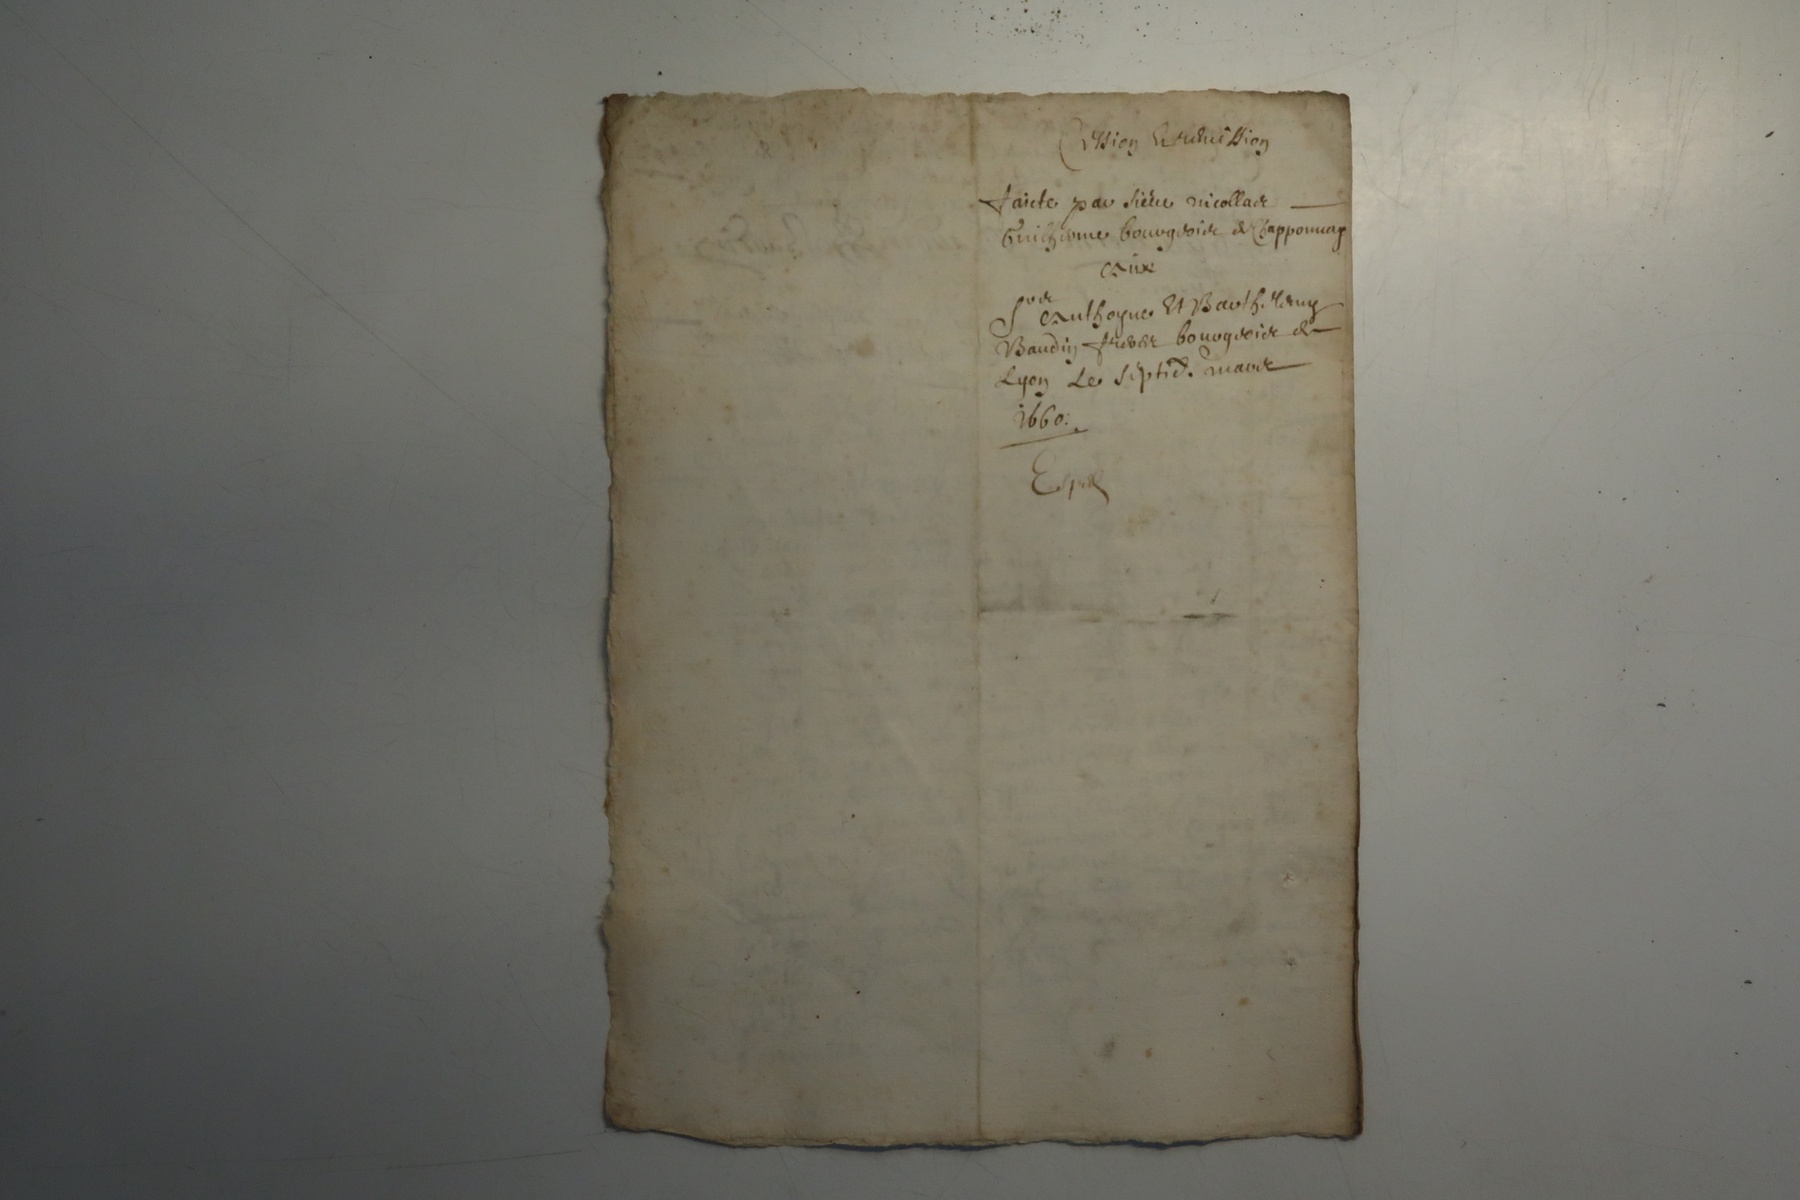 Cession Et remission
faicte par sieur nicollas
Guilherme bourgeois de Chapponnay
aux
Srs Anthoyne Et Barthelemy
Baudin freres bourgeois de
Lyon Le septie. mars
1660.